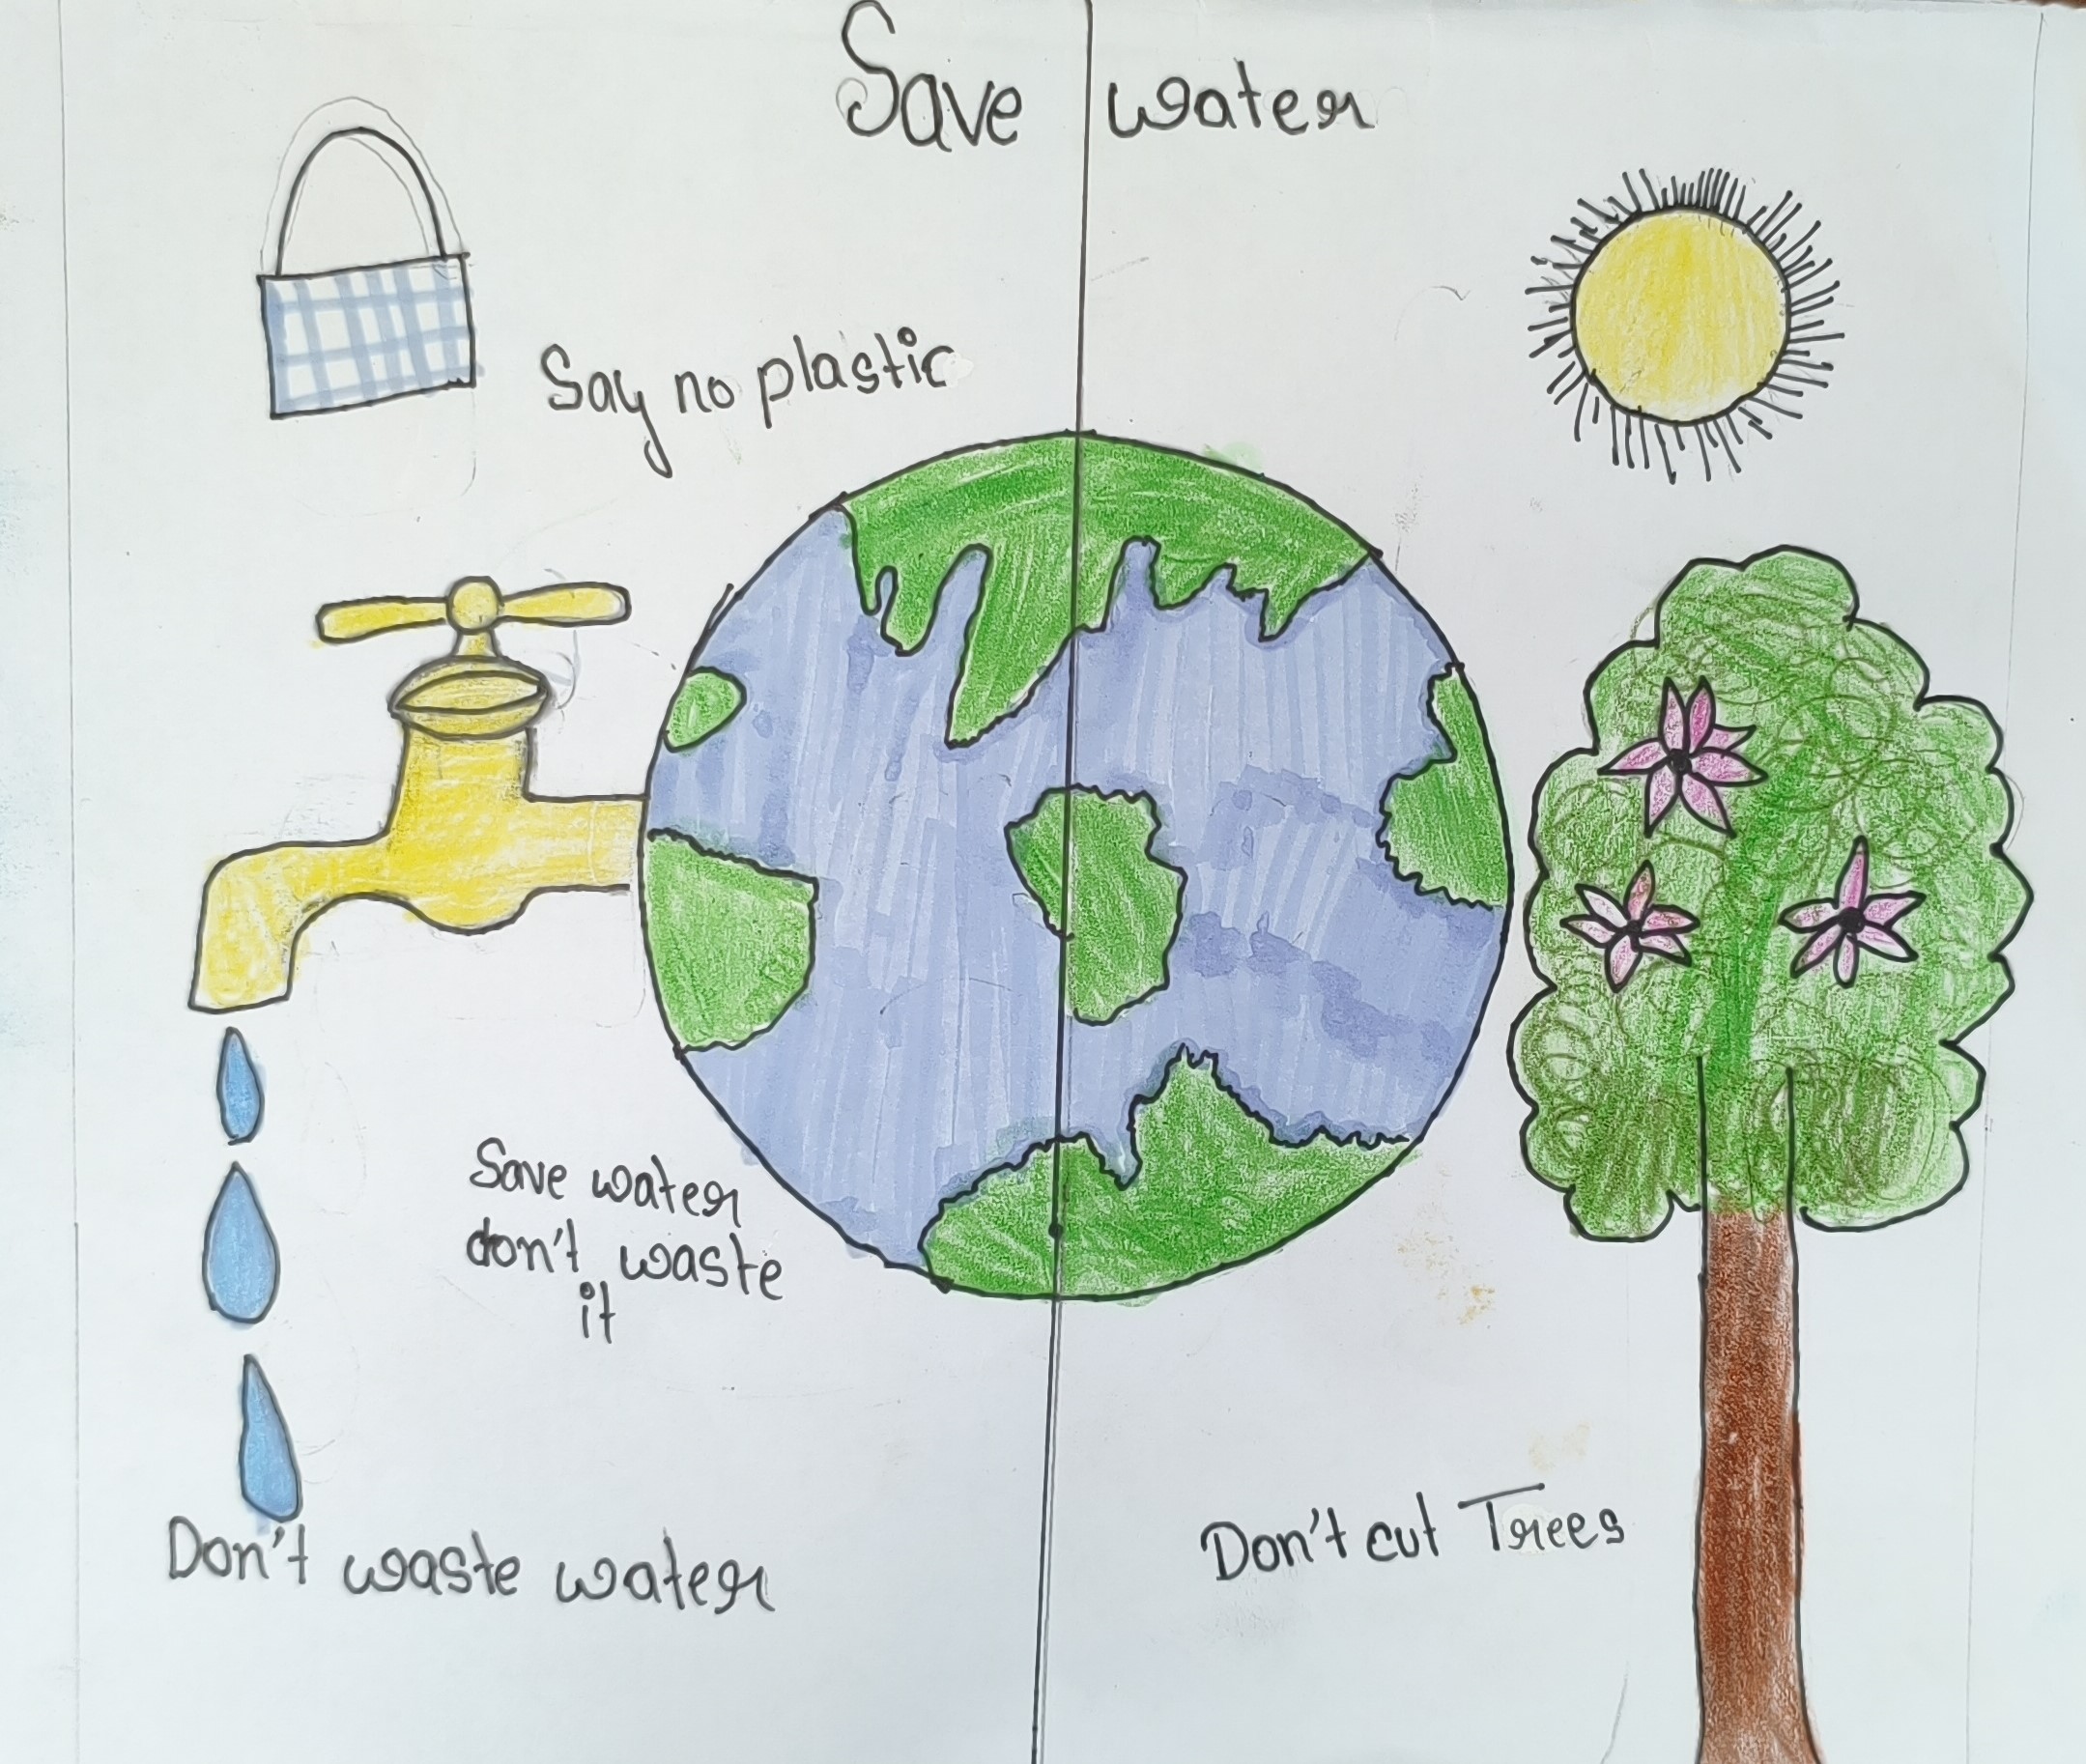 Save water
Say no plastic
Save water
don't waste
it
Don't waste water
Don't cut Trees